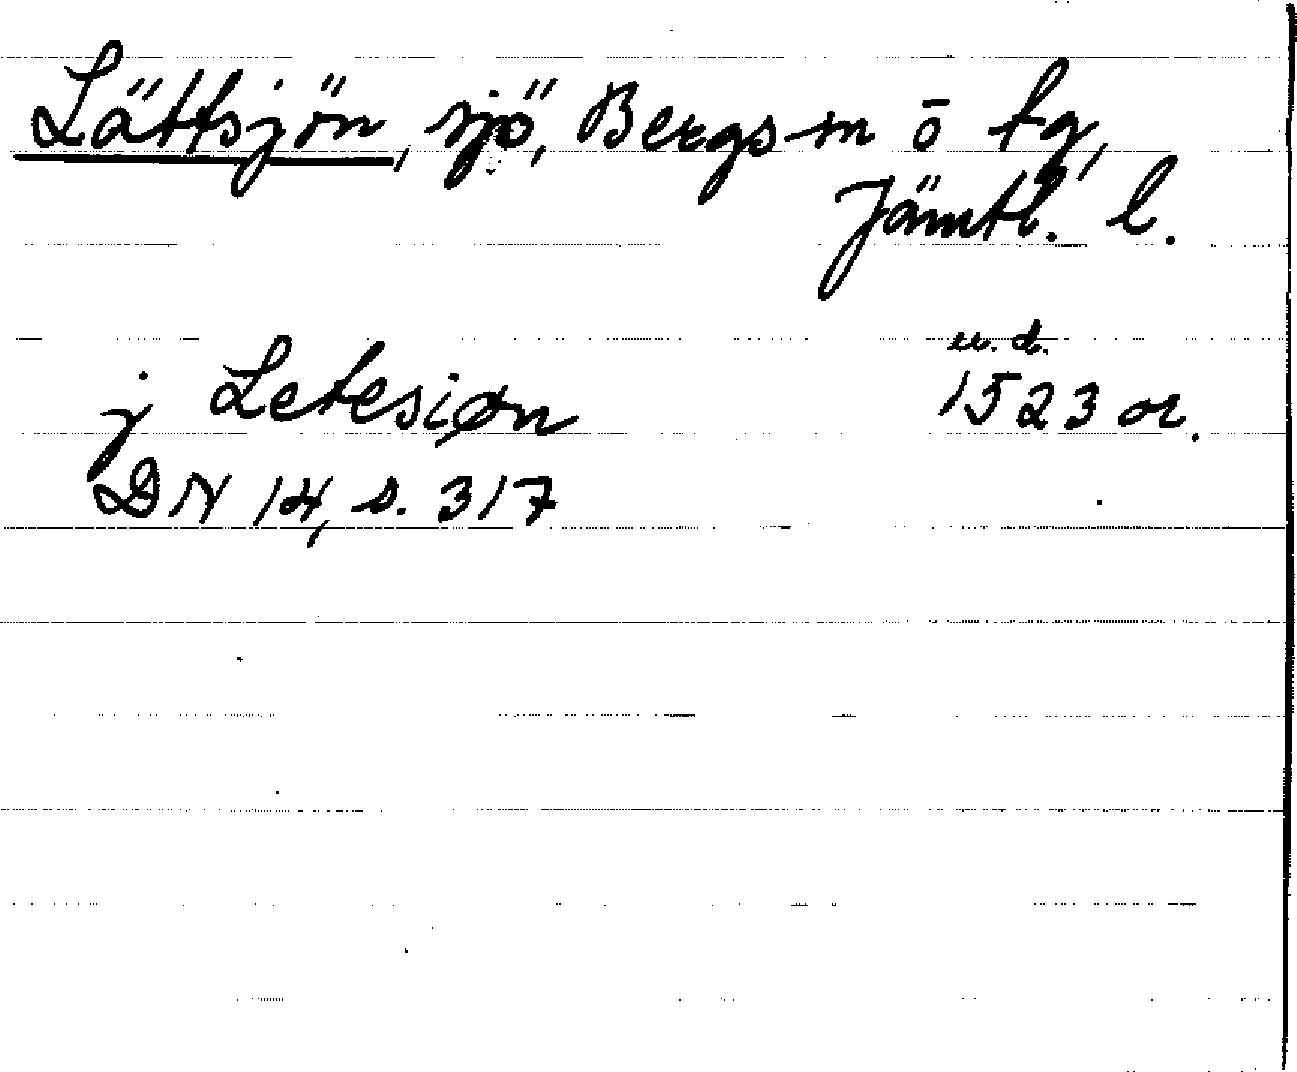 Lättsjön, sjö, Bergs sn o tg,
Jämtl. l.
u. d.
j Letesiøn 1523 or.
DN 14, s. 317